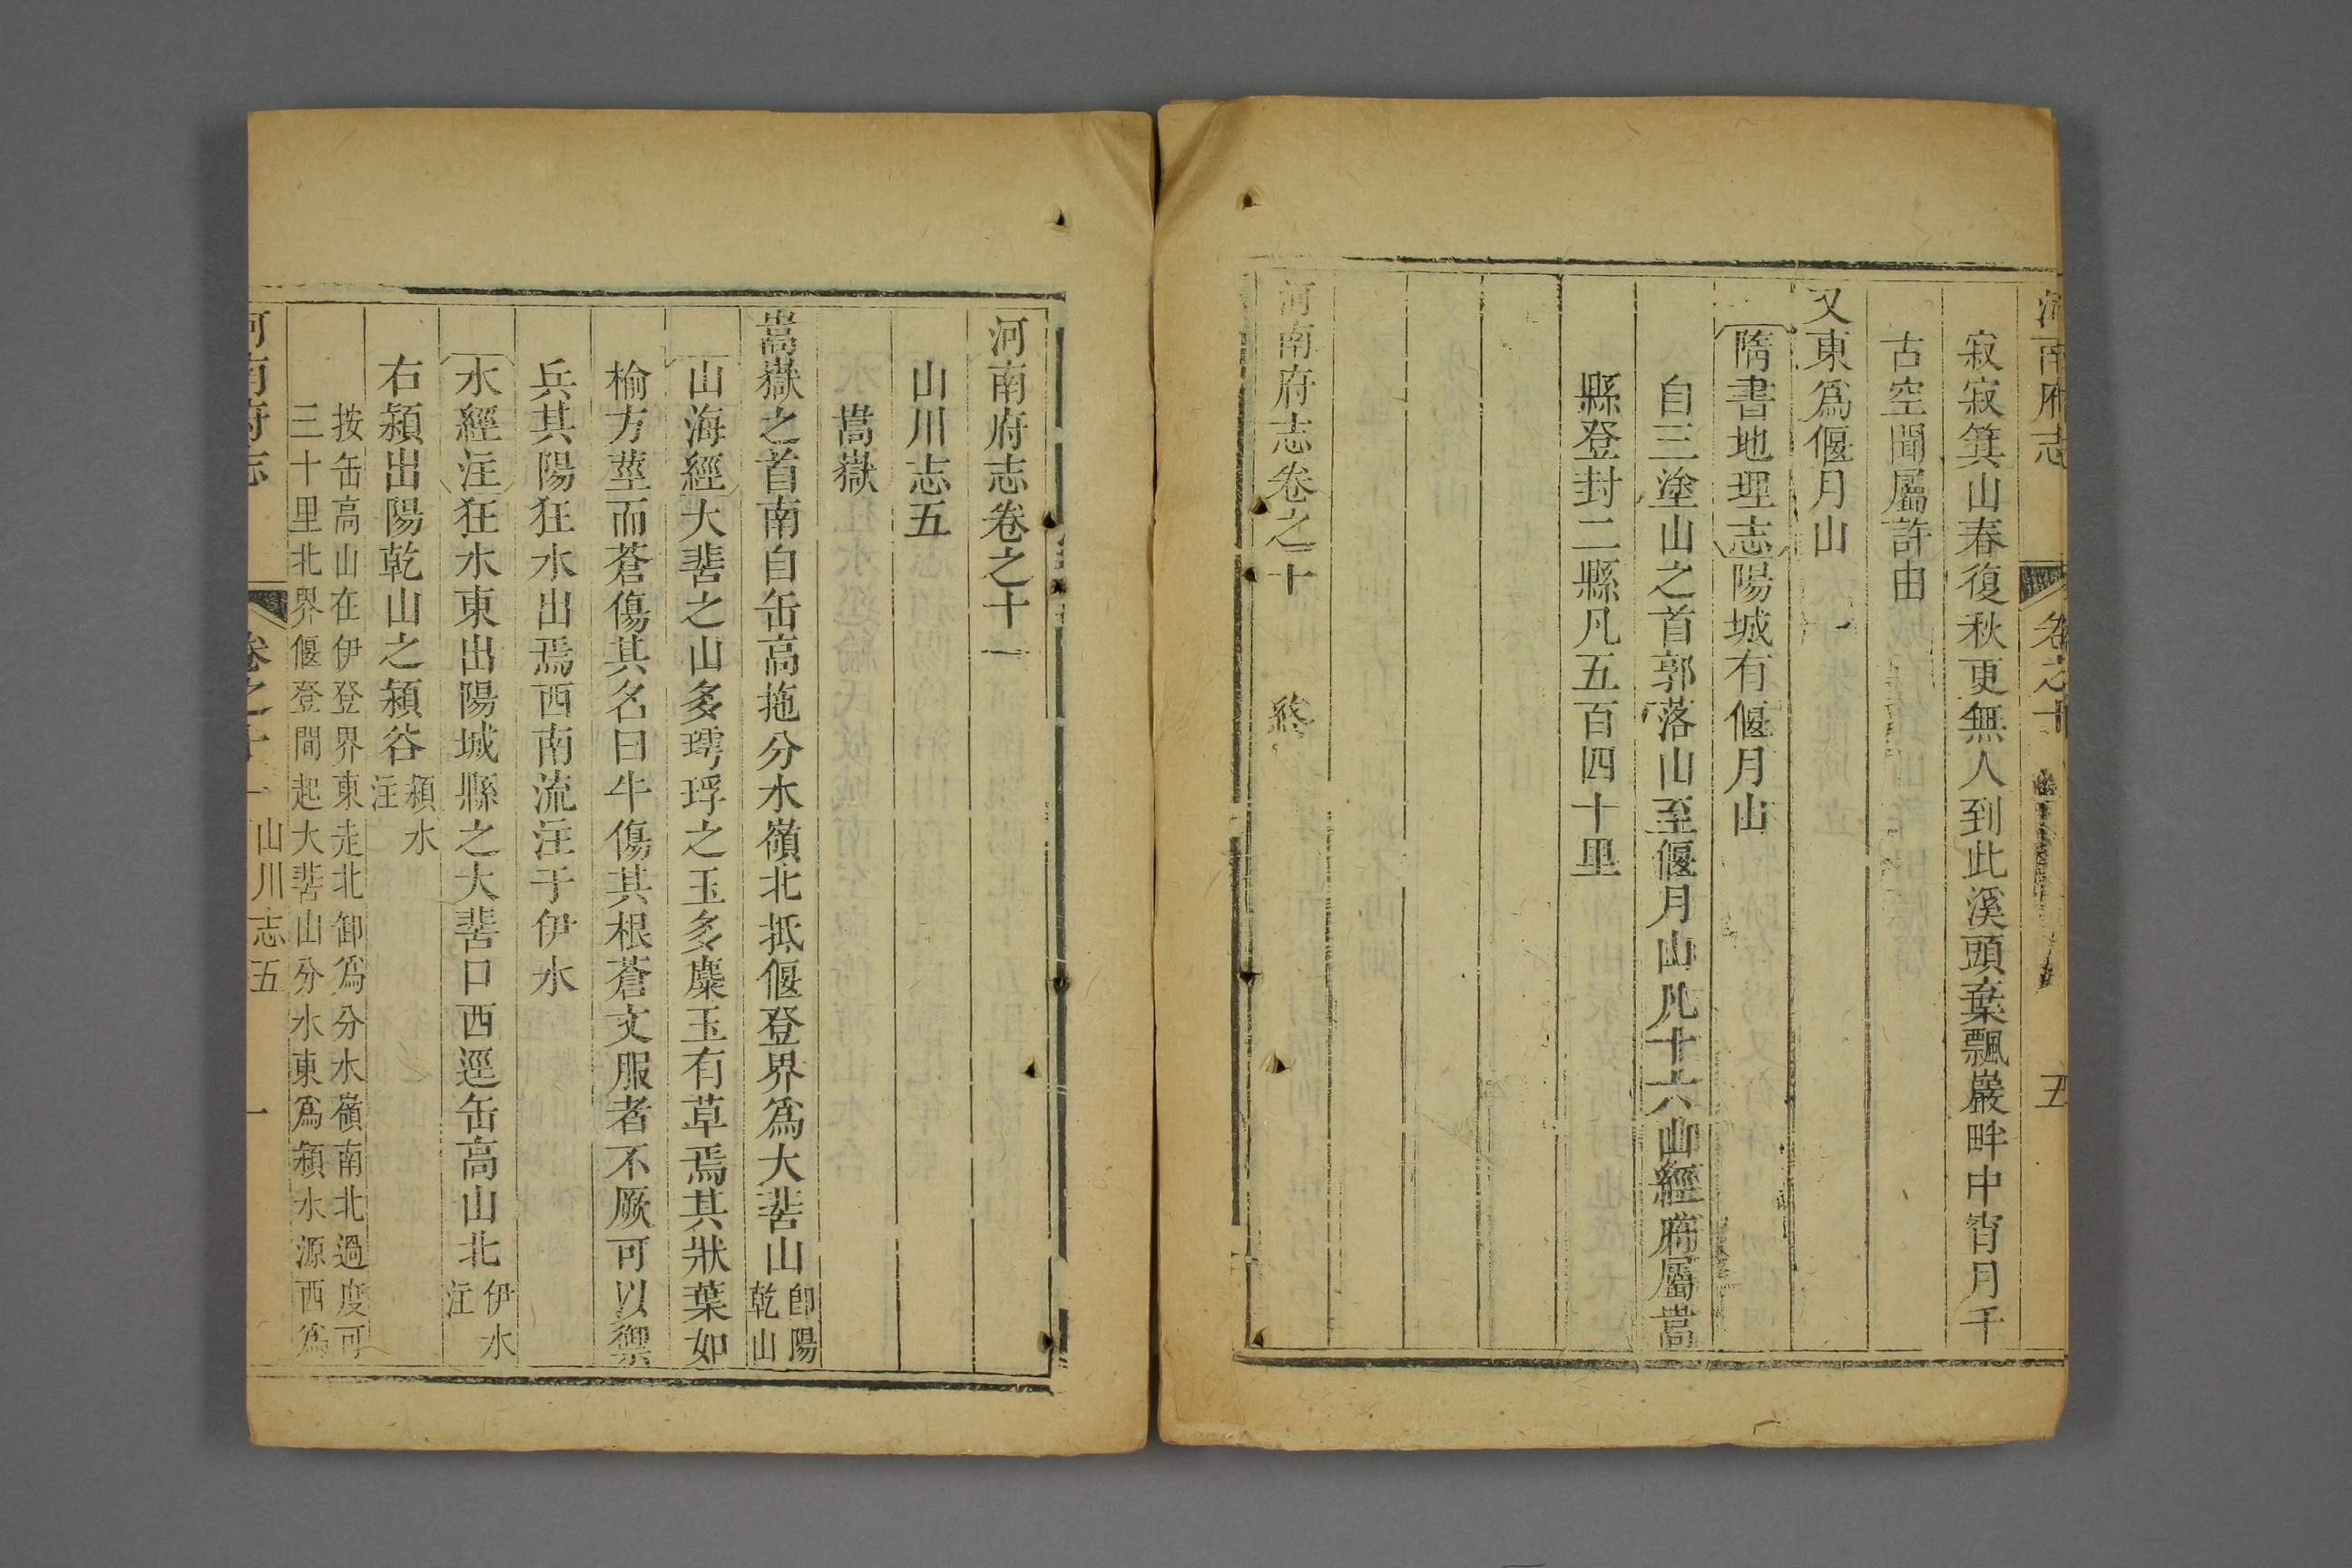 河南府志 卷之十 五
寂寂箕山春復秋更無人到此溪頭棄飄巖畔中宵月千
古空聞屬許由
又東爲偃月山
隋書地理志陽城有偃月山
自三塗山之首郭落山至偃月山凡十六山經府屬嵩
縣登封二縣凡五百四十里
河南府志卷之十 終
河南府志卷之十一
山川志五
嵩嶽
嵩嶽之首南自缶高拖分水嶺北抵偃登界爲大䓹山卽陽
乾山
山海經大䓹之山多㻬琈之玉多麋玉有草焉其狀葉如
榆方莖而蒼傷其名曰牛傷其根蒼文服者不厥可以禦
兵其陽狂水出焉西南流注于伊水
水經注狂水東出陽城縣之大䓹口西逕缶高山北伊水
注
右潁出陽乾山之潁谷潁水
注
按缶高山在伊登界東走北卸爲分水嶺南北過度可
三十里北界偃登間起大䓹山分水東爲潁水源西爲
河南府志 卷之十一 山川志五 一